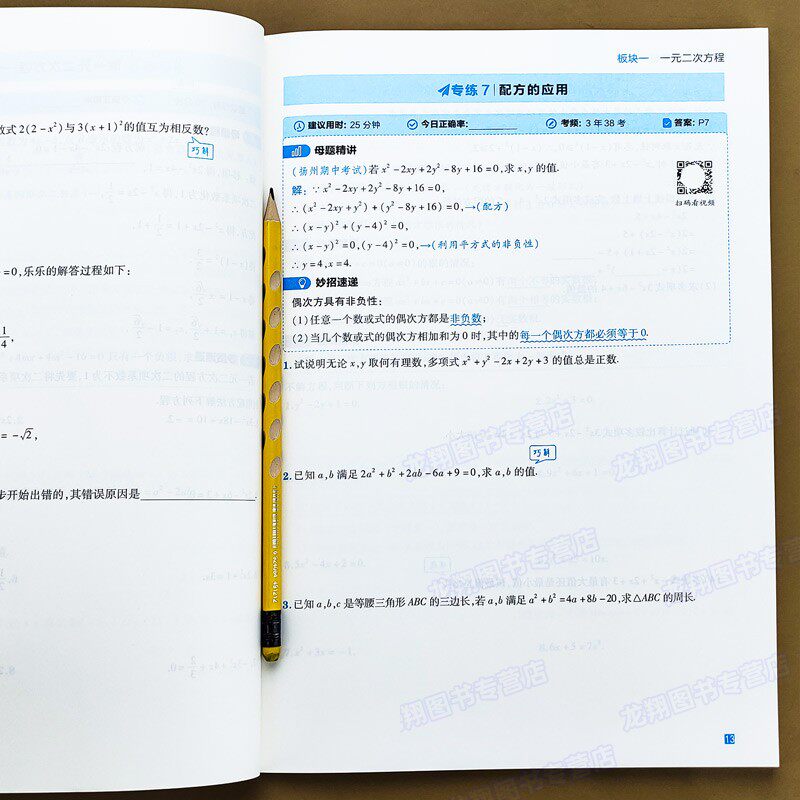 数式2(2-x²)与3(x+1)²的值互为相反数?
巧解
=0,乐乐的解答过程如下:
1/4,
=-√2,
步开始出错的,其错误原因是
板块一 一元二次方程
专练7 配方的应用
建议用时:25分钟 今日正确率: 考频:3年38考 答案:P7
母题精讲
(扬州期中考试)若x²-2xy+2y²-8y+16=0,求x,y的值.
解:∵x²-2xy+2y²-8y+16=0,
∴(x²-2xy+y²)+(y²-8y+16)=0,→(配方)
∴(x-y)²+(y-4)²=0,
∴(x-y)²=0,(y-4)²=0,→(利用平方式的非负性)
∴y=4,x=4.
扫码看视频
妙招速递
偶次方具有非负性:
(1)任意一个数或式的偶次方都是非负数;
(2)当几个数或式的偶次方相加和为0时,其中的每一个偶次方都必须等于0.
1.试说明无论x,y取何有理数,多项式x²+y²-2x+2y+3的值总是正数.
巧解
2.已知a,b满足2a²+b²+2ab-6a+9=0,求a,b的值.
3.已知a,b,c是等腰三角形ABC的三边长,若a,b满足a²+b²=4a+8b-20,求△ABC的周长.
13
龙翔图书专营店
龙翔图书专营店
龙翔图书专营店
龙翔图书专营店
翔图书专营店
龙翔图书专营店